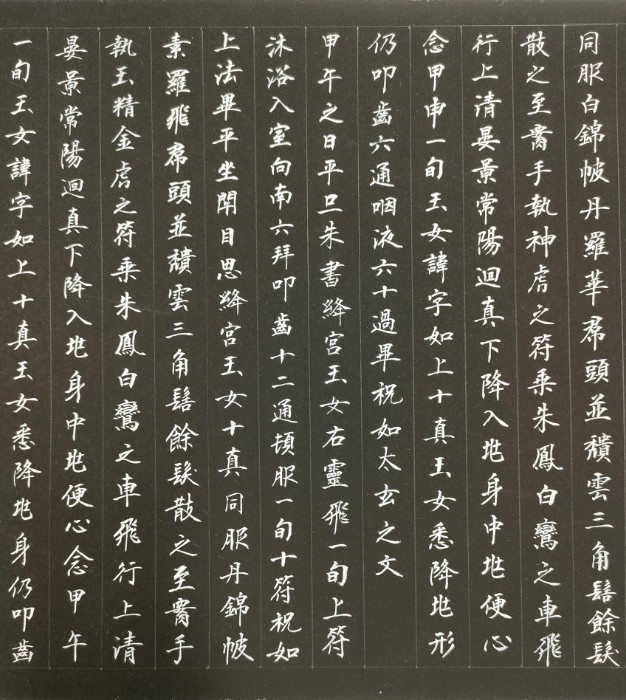 同服白錦帔丹羅華帬頭並穨雲三角髻餘髮
散之至䙅手執神虎之符乘朱鳳白鸞之車飛
行上清晏景常陽迴真下降入兆身中兆便心
念甲申一旬玉女諱字如上十真玉女悉降兆形
仍叩齒六通咽液六十過畢祝如太玄之文
甲午之日平旦朱書絳宮玉女右靈飛一旬上符
沐浴入室向南六拜叩齒十二通頓服一旬十符祝如
上法畢平坐閉目思絳宮玉女十真同服丹錦帔
素羅飛帬頭並穨雲三角髻餘髮散之至䙅手
執玉精金虎之符乘朱鳳白鸞之車飛行上清
晏景常陽迴真下降入兆身中兆便心念甲午
一旬玉女諱字如上十真玉女悉降兆身仍叩齒